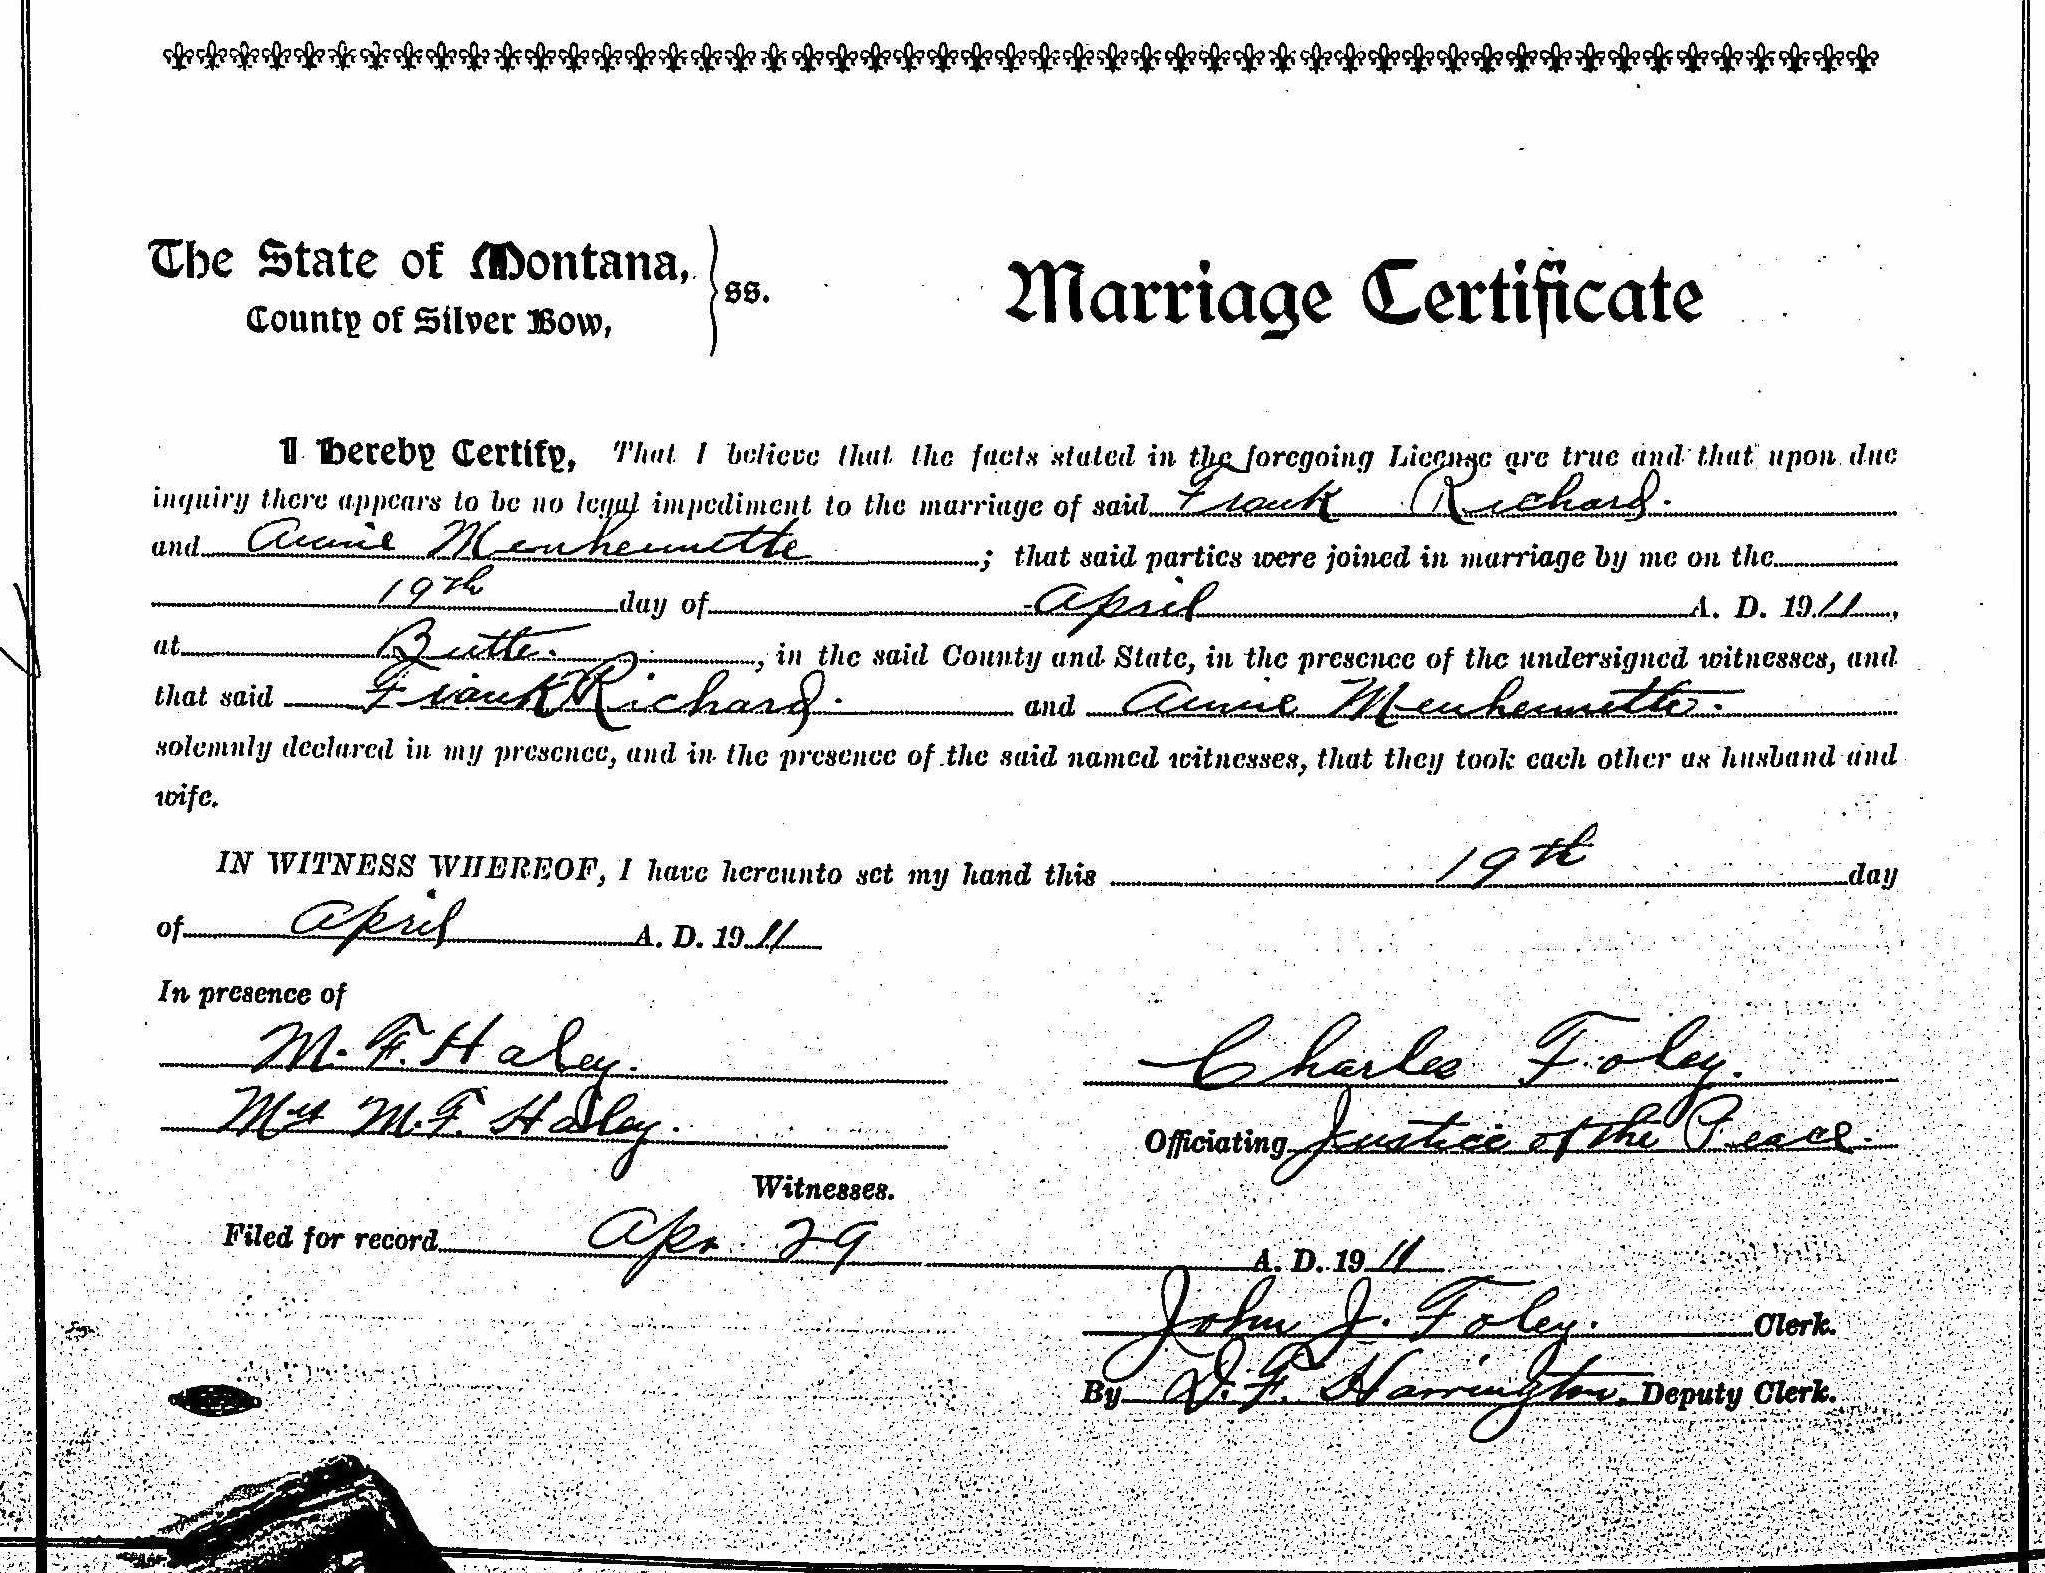 The State of Montana,
County of Silver Bow,
ss.
Marriage Certificate
I Hereby Certify, That I believe that the facts stated in the foregoing License are true and that upon due
inquiry there appears to be no legal impediment to the marriage of said Frank Richard.
and Annie Menhennette ; that said parties were joined in marriage by me on the
19th day of April A. D. 1911,
at Butte. , in the said County and State, in the presence of the undersigned witnesses, and
that said Frank Richard. and Annie Menhennette.
solemnly declared in my presence, and in the presence of the said named witnesses, that they took each other as husband and
wife.
IN WITNESS WHEREOF, I have hereunto set my hand this 19th day
of April A. D. 1911
In presence of
M. F. Haley.
Charles Foley.
Mrs M. F. Haley.
Officiating Justice of the Peace.
Witnesses.
Filed for record Apr. 29 A. D. 1911
John J. Foley. Clerk.
By D. F. Harrington, Deputy Clerk.